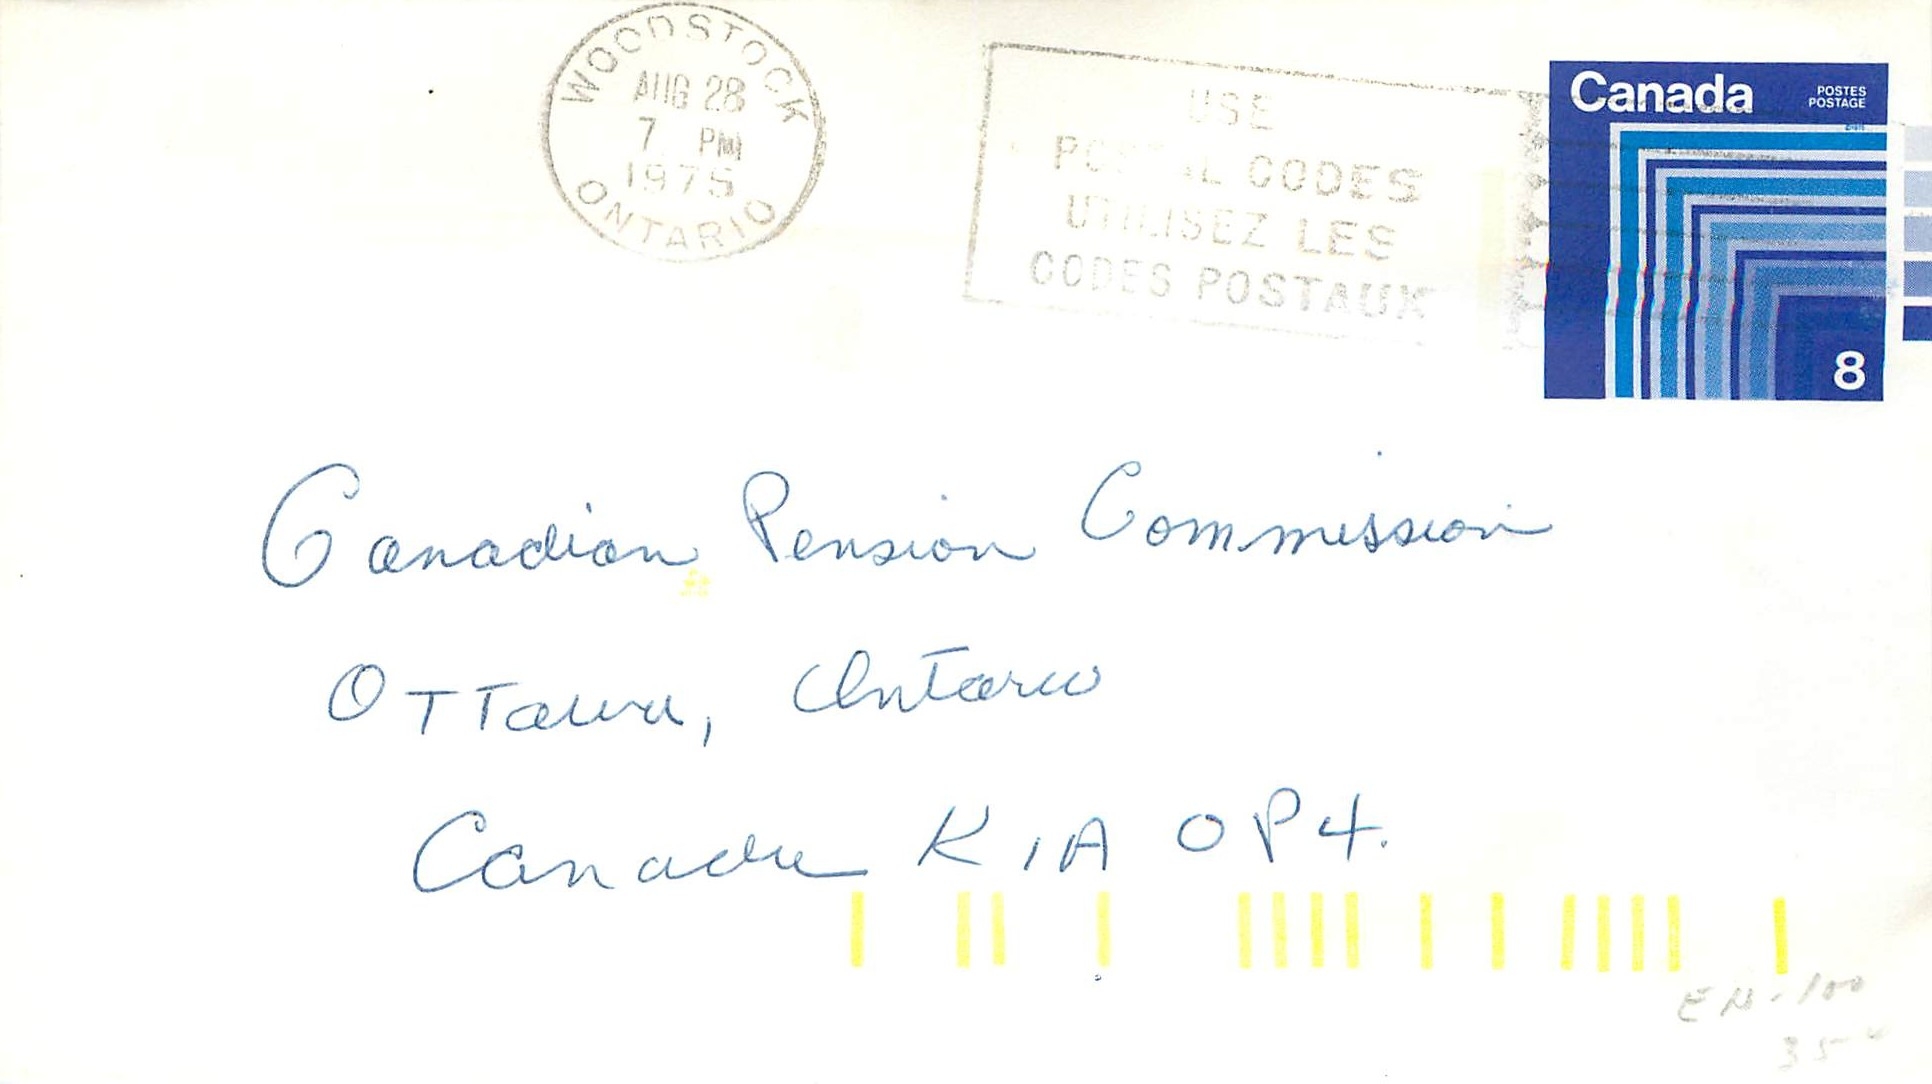 WOODSTOCK
AUG 28
7 PM
1975
ONTARIO
USE
POSTAL CODES
UTILISEZ LES
CODES POSTAUX
Canada
POSTES
POSTAGE
8
Canadian Pension Commission
Ottawa, Ontario
Canada K1A 0P4.
EN-100
35